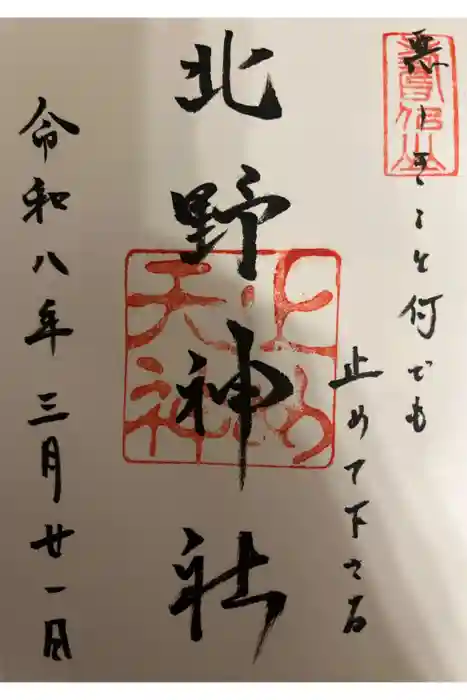 悪しきこと何でも
止めて下さる
北野神社
止め
天神
令和八年三月廿一日